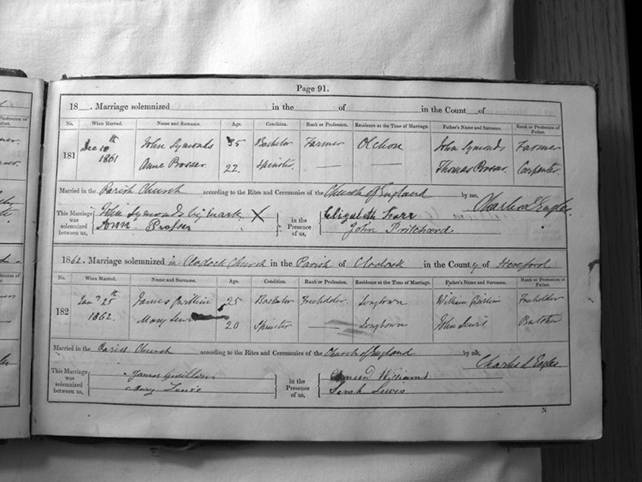 Page 91.
18 . Marriage solemnized in the of in the Count of
No. When Married. Name and Surname. Age. Condition. Rank or Profession. Residence at the Time of Marriage. Father's Name and Surname. Rank or Profession of Father.
181 Dec 10th 1861 John Symonds 35 Bachelor Farmer Olchon John Symonds Farmer
Anne Prosser 22 Spinster — — Thomas Prosser Carpenter
Married in the Parish Church according to the Rites and Ceremonies of the Church of England by me,
Charles L Eagles
This Marriage was solemnized between us, John Symonds his mark X in the Presence of us, Elizabeth
Ann Prosser John Pritchard
1862. Marriage solemnized in Clodock Church in the Parish of Clodock in the County of Hereford
No. When Married. Name and Surname. Age. Condition. Rank or Profession. Residence at the Time of Marriage. Father's Name and Surname. Rank or Profession of Father.
182 Jany 25th 1862 James 25 Bachelor Freeholder William Freeholder
Mary Lewis 20 Spinster — John Lewis
Married in the Parish Church according to the Rites and Ceremonies of the Church of England by me,
Charles L Eagles
This Marriage was solemnized between us, James in the Presence of us, Williams
Mary Lewis Sarah Lewis
N